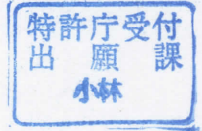 特許庁受付
出願課
小林